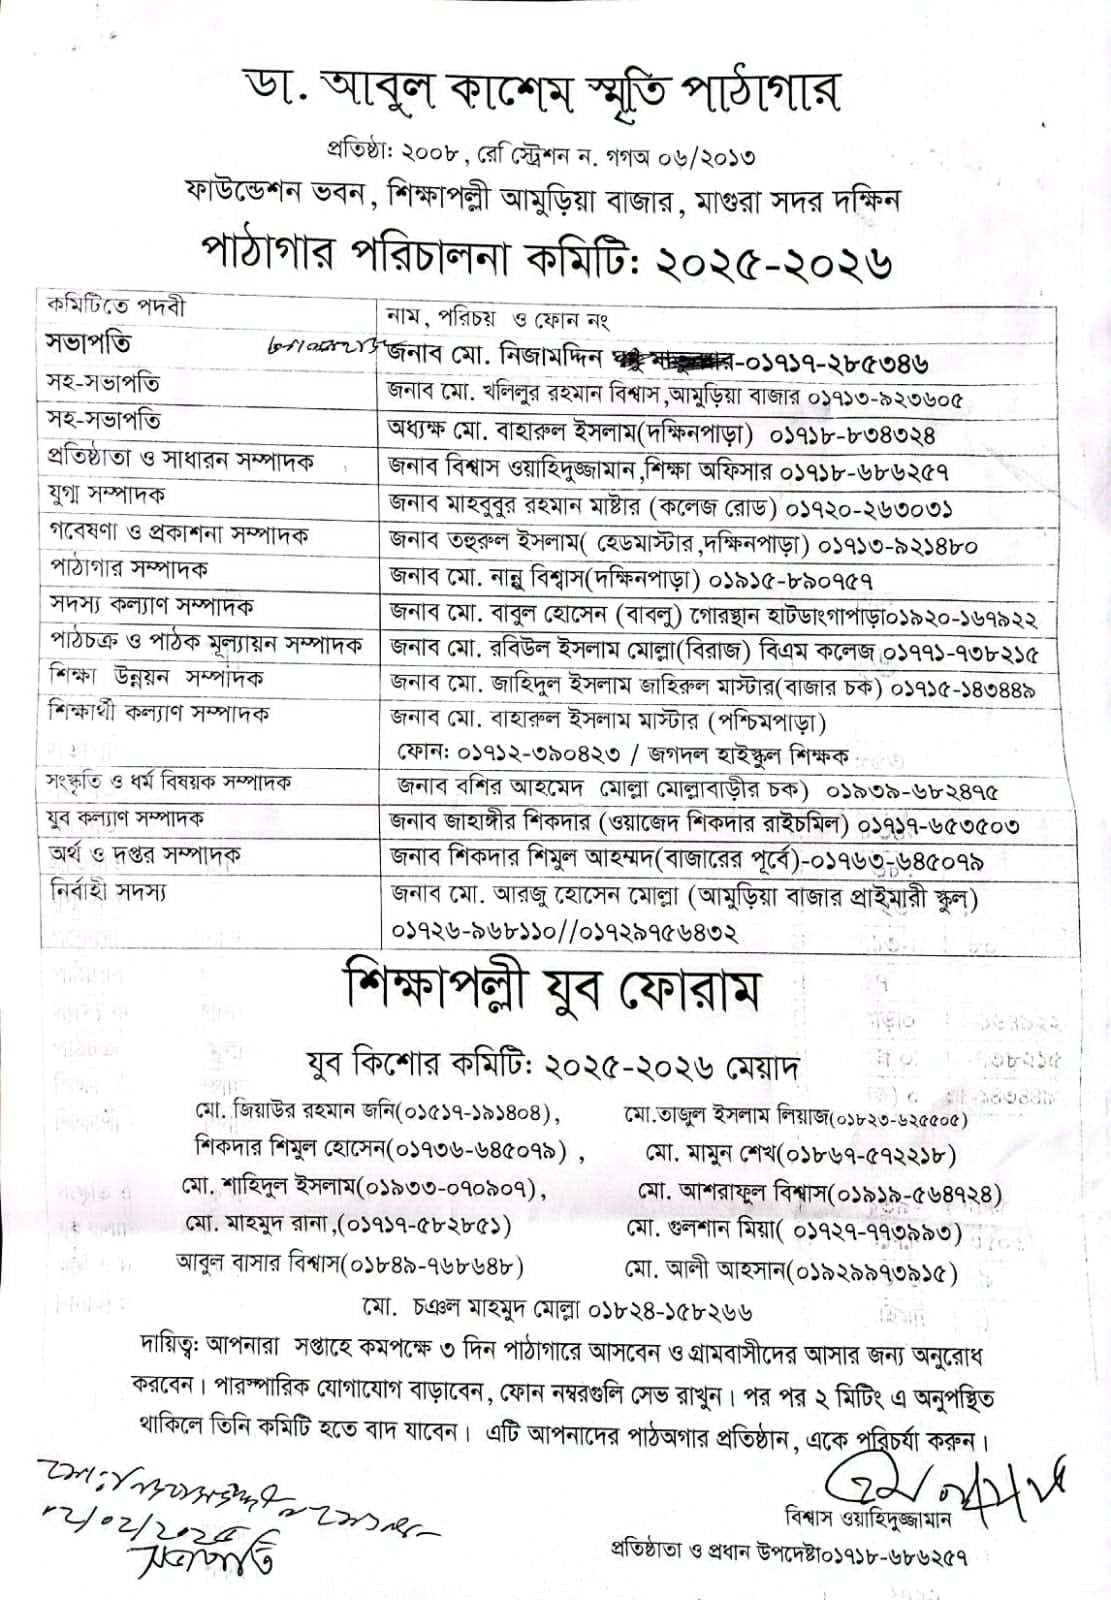 ডা. আবুল কাশেম স্মৃতি পাঠাগার
প্রতিষ্ঠা: ২০০৮, রেস্ট্রিেশন ন. গগঅ ০৬/২০১৩
ফাউন্ডেশন ভবন, শিক্ষাপল্লী আমুড়িয়া বাজার, মাগুরা সদর দক্ষিন
পাঠাগার পরিচালনা কমিটি: ২০২৫-২০২৬
কমিটিতে পদবী নাম, পরিচয় ও ফোন নং
সভাপতি জনাব মো. নিজামদ্দিন -০১৭১৭-২৮৫৩৪৬
সহ-সভাপতি জনাব মো. খলিলুর রহমান বিশ্বাস,আমুড়িয়া বাজার ০১৭১৩-৯২৩৬০৫
সহ-সভাপতি অধ্যক্ষ মো. বাহারুল ইসলাম(দক্ষিনপাড়া) ০১৭১৮-৮৩৪৩২৪
প্রতিষ্ঠাতা ও সাধারন সম্পাদক জনাব বিশ্বাস ওয়াহিদুজ্জামান,শিক্ষা অফিসার ০১৭১৮-৬৮৬২৫৭
যুগ্ম সম্পাদক জনাব মাহবুবুর রহমান মাষ্টার (কলেজ রোড) ০১৭২০-২৬৩০৩১
গবেষণা ও প্রকাশনা সম্পাদক জনাব তহুরুল ইসলাম( হেডমাস্টার,দক্ষিনপাড়া) ০১৭১৩-৯২১৪৮০
পাঠাগার সম্পাদক জনাব মো. নান্নু বিশ্বাস(দক্ষিনপাড়া) ০১৯১৫-৮৯০৭৫৭
সদস্য কল্যাণ সম্পাদক জনাব মো. বাবুল হোসেন (বাবলু) গোরস্থান হাটডাংগাপাড়া০১৯২০-১৬৭৯২২
পাঠচক্র ও পাঠক মূল্যায়ন সম্পাদক জনাব মো. রবিউল ইসলাম মোল্লা(বিরাজ) বিএম কলেজ ০১৭৭১-৭৩৮২১৫
শিক্ষা উন্নয়ন সম্পাদক জনাব মো. জাহিদুল ইসলাম জাহিরুল মাস্টার(বাজার চক) ০১৭১৫-১৪৩৪৪৯
শিক্ষার্থী কল্যাণ সম্পাদক জনাব মো. বাহারুল ইসলাম মাস্টার (পশ্চিমপাড়া)
ফোন: ০১৭১২-৩৯০৪২৩ / জগদল হাইস্কুল শিক্ষক
সংস্কৃতি ও ধর্ম বিষয়ক সম্পাদক জনাব বশির আহমেদ মোল্লা মোল্লাবাড়ীর চক) ০১৯৩৯-৬৮২৪৭৫
যুব কল্যাণ সম্পাদক জনাব জাহাঙ্গীর শিকদার (ওয়াজেদ শিকদার রাইচমিল) ০১৭১৭-৬৫৩৫০৩
অর্থ ও দপ্তর সম্পাদক জনাব শিকদার শিমুল আহম্মদ(বাজারের পূর্বে)-০১৭৬৩-৬৪৫০৭৯
নির্বাহী সদস্য জনাব মো. আরজু হোসেন মোল্লা (আমুড়িয়া বাজার প্রাইমারী স্কুল)
০১৭২৬-৯৬৮১১০//০১৭২৯৭৫৬৪৩২
শিক্ষাপল্লী যুব ফোরাম
যুব কিশোর কমিটি: ২০২৫-২০২৬ মেয়াদ
মো. জিয়াউর রহমান জনি(০১৫১৭-১৯১৪০৪), মো.তাজুল ইসলাম লিয়াজ(০১৮২৩-৬২৫৫০৫)
শিকদার শিমুল হোসেন(০১৭৩৬-৬৪৫০৭৯) , মো. মামুন শেখ(০১৮৬৭-৫৭২২১৮)
মো. শাহিদুল ইসলাম(০১৯৩৩-০৭০৯০৭), মো. আশরাফুল বিশ্বাস(০১৯১৯-৫৬৪৭২৪)
মো. মাহমুদ রানা,(০১৭১৭-৫৮২৮৫১) মো. গুলশান মিয়া( ০১৭২৭-৭৭৩৯৯৩)
আবুল বাসার বিশ্বাস(০১৮৪৯-৭৬৮৬৪৮) মো. আলী আহসান(০১৯২৯৯৭৩৯১৫)
মো. চঞ্চল মাহমুদ মোল্লা ০১৮২৪-১৫৮২৬৬
দায়িত্ব: আপনারা সপ্তাহে কমপক্ষে ৩ দিন পাঠাগারে আসবেন ও গ্রামবাসীদের আসার জন্য অনুরোধ
করবেন। পারস্পারিক যোগাযোগ বাড়াবেন, ফোন নম্বরগুলি সেভ রাখুন। পর পর ২ মিটিং এ অনুপস্থিত
থাকিলে তিনি কমিটি হতে বাদ যাবেন। এটি আপনাদের পাঠঅগার প্রতিষ্ঠান, একে পরিচর্যা করুন।
১২/০২/২০২৫
সভাপতি
বিশ্বাস ওয়াহিদুজ্জামান
প্রতিষ্ঠাতা ও প্রধান উপদেষ্টা০১৭১৮-৬৮৬২৫৭